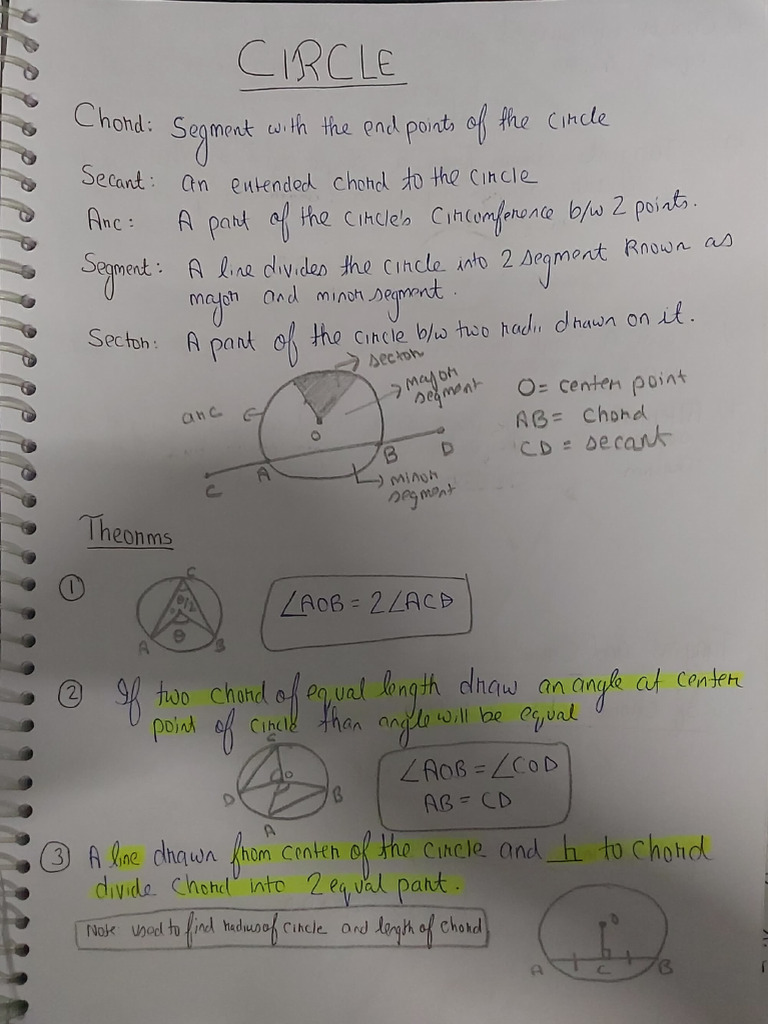 CIRCLE
Chord: Segment with the end points of the circle
Secant: an entended chord to the circle
Arc: A part of the circle's Circomference b/w 2 points.
Segment: A line divides the circle into 2 segment known as
major and minor segment.
Sector: A part of the circle b/w two radii drawn on it.
sector
major
segment
arc
O
O = center point
AB = Chord
CD = secant
C
A
B
D
minor
segment
Theorms
①
C
θ/2
θ
A
B
∠AOB = 2∠ACB
② If two chord of equal length draw an angle at center
point of circle than angle will be equal
C
O
D
B
A
∠AOB = ∠COD
AB = CD
③ A line drawn from center of the circle and ⊥ to chord
divide chord into 2 equal part.
Note used to find radius of circle and length of chord
O
A
C
B